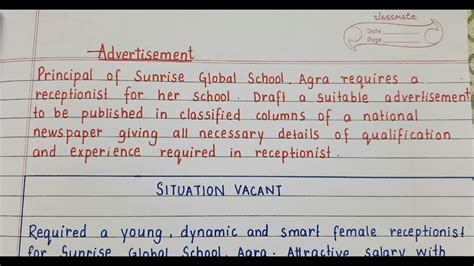 classmate
Date
Page
Advertisement
Principal of Sunrise Global School, Agra requires a
receptionist for her school. Draft a suitable advertisement
to be published in classified columns of a national
newspaper giving all necessary details of qualification
and experience required in receptionist.
SITUATION VACANT
Required a young, dynamic and smart female receptionist
for Sunrise Global School, Agra. Attractive salary with